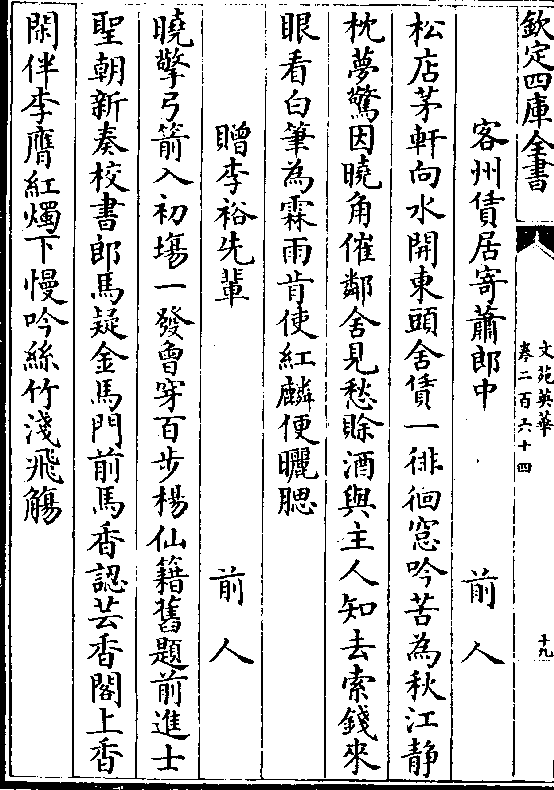 欽定四庫全書
文苑英華
卷二百六十四
十九
客州賃居寄蕭郎中 前人
松店茅軒向水開東頭舍賃一徘徊窓吟苦為秋江静
枕夢驚因曉角催鄰舍見愁賒酒與主人知去索錢來
眼看白筆為霖雨肯使紅麟便曬腮
贈李裕先輩 前人
曉擎弓箭入初塲一發㑹穿百步楊仙籍舊題前進士
聖朝新奏校書郎馬疑金馬門前馬香認芸香閣上香
閑伴李膺紅燭下慢吟絲竹淺飛觴